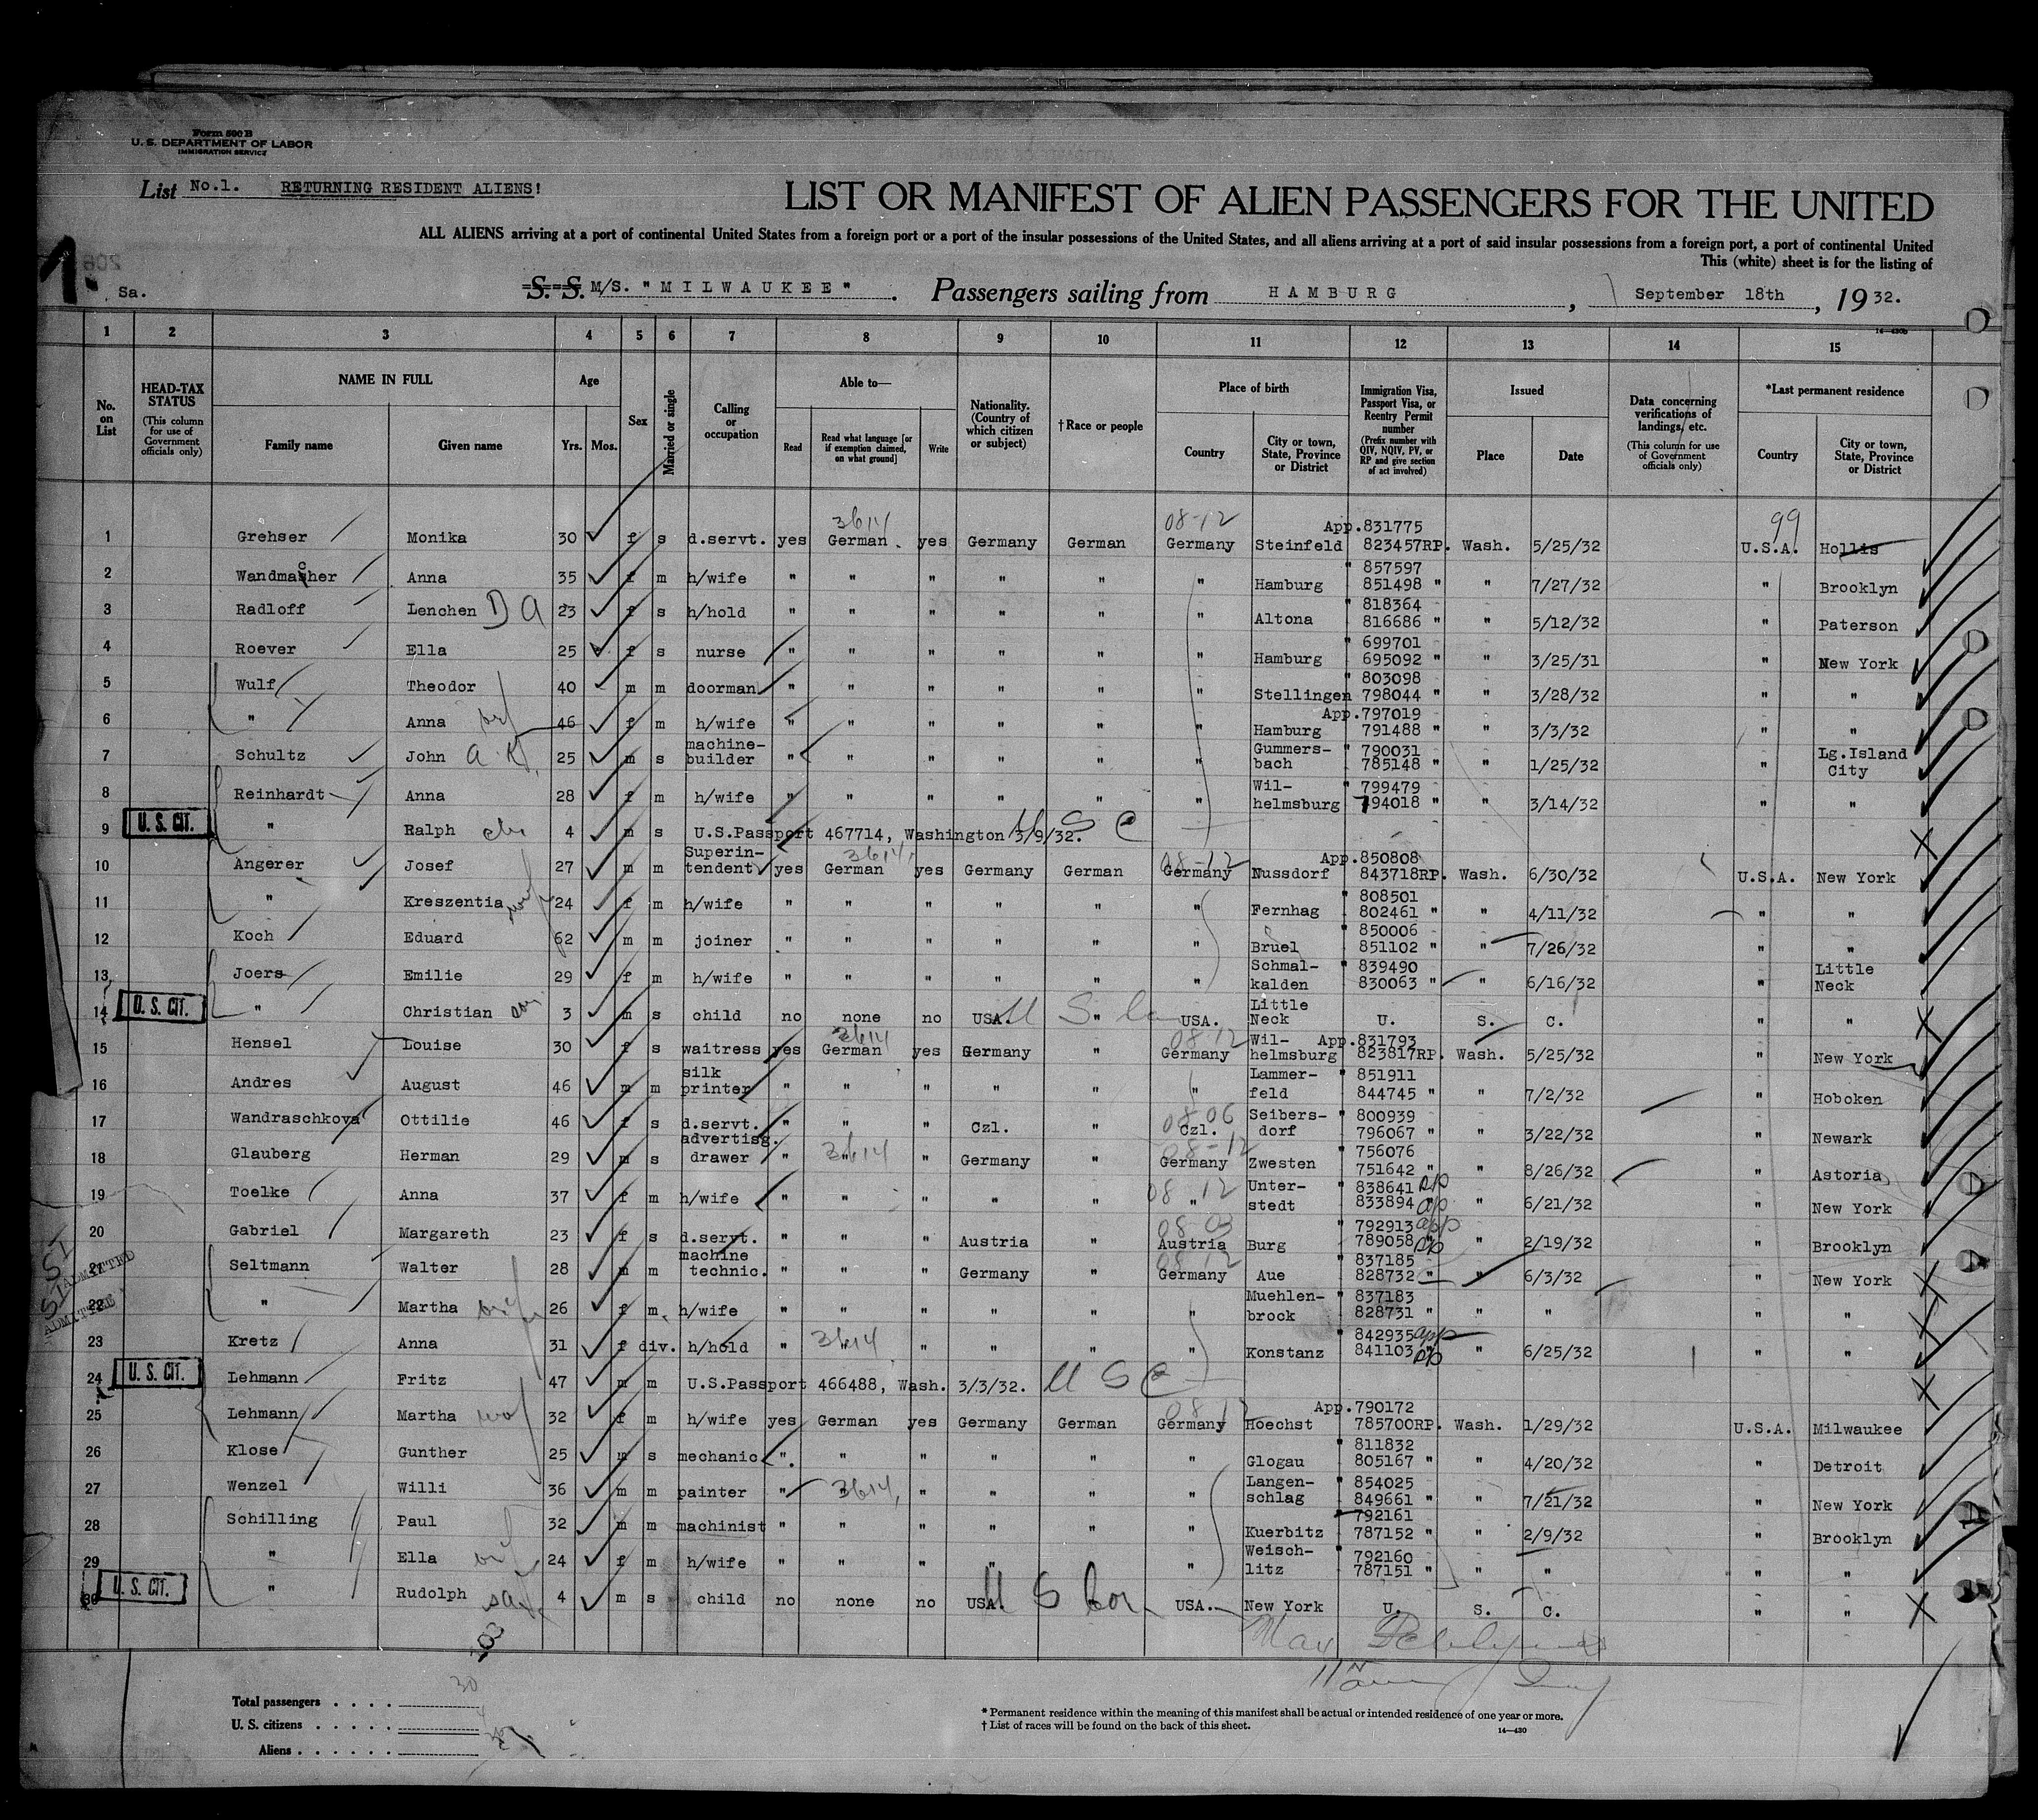 Form 500 B
U. S. DEPARTMENT OF LABOR
IMMIGRATION SERVICE
List No.1. RETURNING RESIDENT ALIENS!
LIST OR MANIFEST OF ALIEN PASSENGERS FOR THE UNITED
ALL ALIENS arriving at a port of continental United States from a foreign port or a port of the insular possessions of the United States, and all aliens arriving at a port of said insular possessions from a foreign port, a port of continental United
This (white) sheet is for the listing of
1.
Sa.
S. S. M/S. "MILWAUKEE" . Passengers sailing from HAMBURG , September 18th , 19 32.
14—430b
1 2 3 4 5 6 7 8 9 10 11 12 13 14 15
No. on List
HEAD-TAX STATUS (This column for use of Government officials only)
NAME IN FULL
Family name Given name
Age Yrs. Mos.
Sex
Married or single
Calling or occupation
Able to—
Read Read what language [or if exemption claimed, on what ground] Write
Nationality. (Country of which citizen or subject)
†Race or people
Place of birth
Country City or town, State, Province or District
Immigration Visa, Passport Visa, or Reentry Permit number (Prefix number with QIV, NQIV, PV, or RP and give section of act involved)
Issued
Place Date
Data concerning verifications of landings, etc. (This column for use of Government officials only)
*Last permanent residence
Country City or town, State, Province or District
3614 08-12 App.831775 99
1 Grehser Monika 30 f s d.servt. yes German yes Germany German Germany Steinfeld 823457RP. Wash. 5/25/32 U.S.A. Hollis
" 857597
2 Wandmacher Anna 35 f m h/wife " " " " " " Hamburg 851498 " " 7/27/32 " Brooklyn
" 818364
3 Radloff Lenchen D A 23 f s h/hold " " " " " " Altona 816686 " " 5/12/32 " Paterson
" 699701
4 Roever Ella 25 f s nurse " " " " " " Hamburg 695092 " " 3/25/31 " New York
" 803098
5 Wulf Theodor 40 m m doorman " " " " " " Stellingen 798044 " " 3/28/32 " "
App.797019
6 " Anna 46 f m h/wife " " " " " " Hamburg 791488 " " 3/3/32 " "
machine- Gummers- " 790031 Lg.Island
7 Schultz John 25 m s builder " " " " " " bach 785148 " " 1/25/32 " City
Wil- " 799479
8 Reinhardt Anna 28 f m h/wife " " " " " " helmsburg 794018 " " 3/14/32 " "
U. S. CIT.
9 " Ralph 4 m s U.S.Passport 467714, Washington 3/9/32. U S C
Superin- 3614 08-12 App.850808
10 Angerer Josef 27 m m tendent yes German yes Germany German Germany Nussdorf 843718RP. Wash. 6/30/32 U.S.A. New York
" 808501
11 " Kreszentia 24 f m h/wife " " " " " " Fernhag 802461 " " 4/11/32 " "
" 850006
12 Koch Eduard 62 m m joiner " " " " " " Bruel 851102 " " 7/26/32 " "
Schmal- " 839490 Little
13 Joers Emilie 29 f m h/wife " " " " " " kalden 830063 " " 6/16/32 " Neck
U. S. CIT.
Little
14 " Christian 3 m s child no none no USA. " USA. Neck U. S. C. " "
3614 08-12 Wil- App.831793
15 Hensel Louise 30 f s waitress yes German yes Germany " Germany helmsburg 823817RP. Wash. 5/25/32 " New York
silk Lammer- " 851911
16 Andres August 46 m m printer " " " " " " feld 844745 " " 7/2/32 " Hoboken
08 06 Seibers- " 800939
17 Wandraschkova Ottilie 46 f s d.servt. " " " Czl. " Czl. dorf 796067 " " 3/22/32 " Newark
advertisg. 3614 08-12 " 756076
18 Glauberg Herman 29 m s drawer " " " Germany " Germany Zwesten 751642 " " 8/26/32 " Astoria
08 12 Unter- " 838641
19 Toelke Anna 37 f m h/wife " " " " " " stedt 833894 " 6/21/32 " New York
08 03 " 792913 app
20 Gabriel Margareth 23 f s d.servt. " " " Austria " Austria Burg 789058 " 2/19/32 " Brooklyn
machine 08 12 " 837185
21 Seltmann Walter 28 m m technic. " " " Germany " Germany Aue 828732 " " 6/3/32 " New York
SI ADMITTED
Muehlen- " 837183
22 " Martha 26 f m. h/wife " " " " " " brock 828731 " " " " "
SI ADMITTED
" 842935 app
23 Kretz Anna 31 f div. h/hold " 3614 " " " " " Konstanz 841103 " 6/25/32 " "
U. S. CIT.
24 Lehmann Fritz 47 m m U.S.Passport 466488, Wash. 3/3/32. U S C
08 12 App.790172
25 Lehmann Martha 32 f m h/wife yes German yes Germany German Germany Hoechst 785700RP. Wash. 1/29/32 U.S.A. Milwaukee
" 811832
26 Klose Gunther 25 m s mechanic " " " " " " Glogau 805167 " " 4/20/32 " Detroit
Langen- " 854025
27 Wenzel Willi 36 m m painter " 3614 " " " " " schlag 849661 " " 7/21/32 " New York
" 792161
28 Schilling Paul 32 m m machinist " " " " " " Kuerbitz 787152 " " 2/9/32 " Brooklyn
Weisch- " 792160
29 " Ella 24 f m h/wife " " " " " " litz 787151 " " " " "
U. S. CIT.
30 " Rudolph 4 m s child no none no USA. USA. New York U. S. C. " "
Max
Total passengers . . . . 30
U. S. citizens . . . . . 4
Aliens . . . . . .
* Permanent residence within the meaning of this manifest shall be actual or intended residence of one year or more.
† List of races will be found on the back of this sheet.
14—430